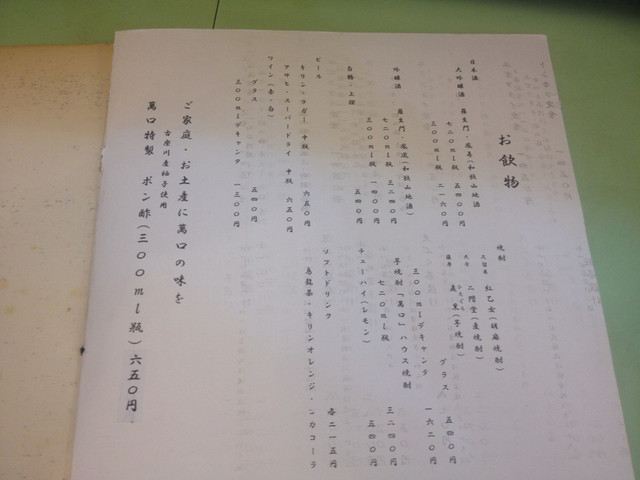 お飲物
日本酒
大吟醸酒 羅生門・龍寿(和歌山地酒)
七二〇ml瓶 五四〇〇円
三〇〇ml瓶 二一六〇円
吟醸酒 羅生門・鳳凰(和歌山地酒)
七二〇ml瓶 三二四〇円
三〇〇ml瓶 一四〇〇円
白鶴・上撰 五四〇円
ビール
キリン・ラガー 中瓶 六五〇円
アサヒ・スーパードライ 中瓶 六五〇円
ワイン(赤・白)
グラス 五四〇円
三〇〇mlデキャンタ 一三〇〇円
焼酎
久留米 紅乙女(胡麻焼酎)
大分 二階堂(麦焼酎)
(芋焼酎)
グラス 五四〇円
三〇〇mlデキャンタ 一六二〇円
芋焼酎「萬口」ハウス焼酎
七二〇ml瓶 三二四〇円
チューハイ(レモン) 五四〇円
ソフトドリンク
烏龍茶・キリンオレンジ・コカコーラ 各二一五円
ご家庭・お土産に萬口の味を
古座川産柚子使用
萬口特製 ポン酢(三〇〇ml瓶)六五〇円